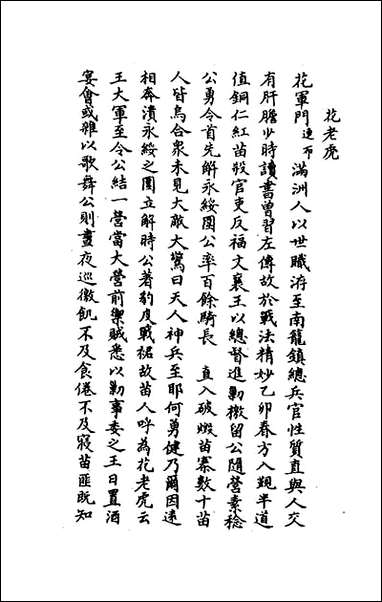 花老虎
花軍門連布滿洲人以世職洊至南龍鎮總兵官性質直與人交
有肝膽少時讀書曾習左傳故於戰法精妙乙卯春方入覲半道
值銅仁紅苗殺官吏反福文襄王以總督進勦檄留公隨營素稔
公勇令首先解永綏圍公率百餘騎長 直入破燬苗寨數十苗
人皆烏合衆未見大敵大驚曰天人神兵至耶何勇健乃爾因遠
相奔潰永綏之圍立解時公著豹皮戰裙故苗人呼為花老虎云
王大軍至令公結一營當大營前禦賊悉以勦事委之王日置酒
宴會或雜以歌舞公則晝夜巡徼飢不及食倦不及寢苗匪既知